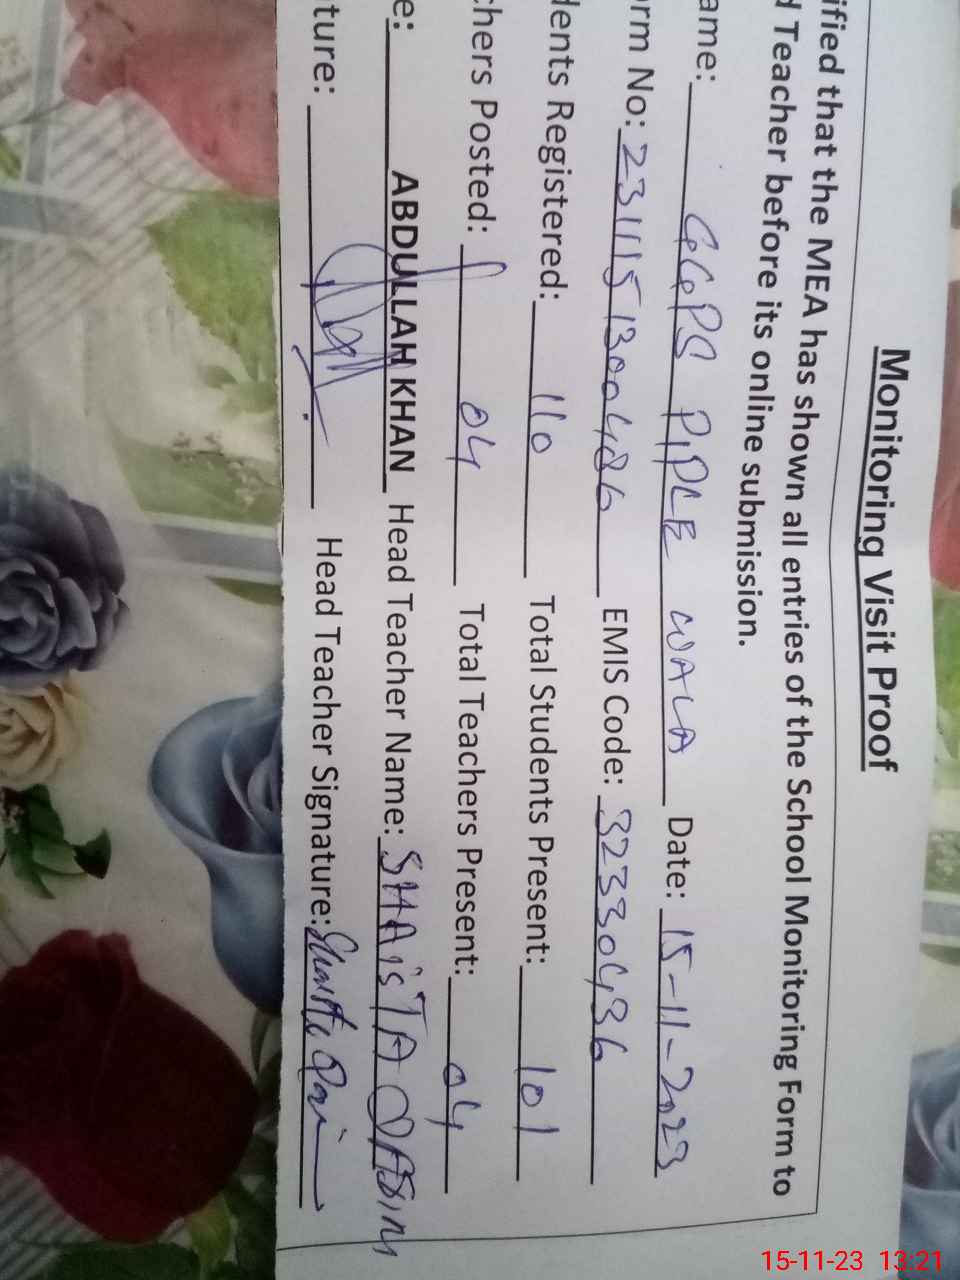 Monitoring Visit Proof
ified that the MEA has shown all entries of the School Monitoring Form to
d Teacher before its online submission.
ame: GGPS PIPLE WALA Date: 15-11-2023
orm No: 2311151300486 EMIS Code: 32330436
dents Registered: 110 Total Students Present: 101
chers Posted: 04 Total Teachers Present: 04
e: ABDULLAH KHAN Head Teacher Name: SHAISTA
ture: Head Teacher Signature:
15-11-23 13:21